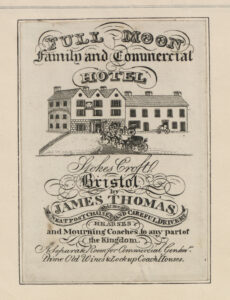 FULL MOON
Family and Commercial
HOTEL
Stokes Croft
Bristol
by
JAMES THOMAS
NEAT POST CHAISES AND CAREFUL DRIVERS
HEARSES
and Mourning Coaches to any part of
the Kingdom.
A Separate Room for Commercial Gentn.
Prime Old Wines & Lock up Coach Houses.